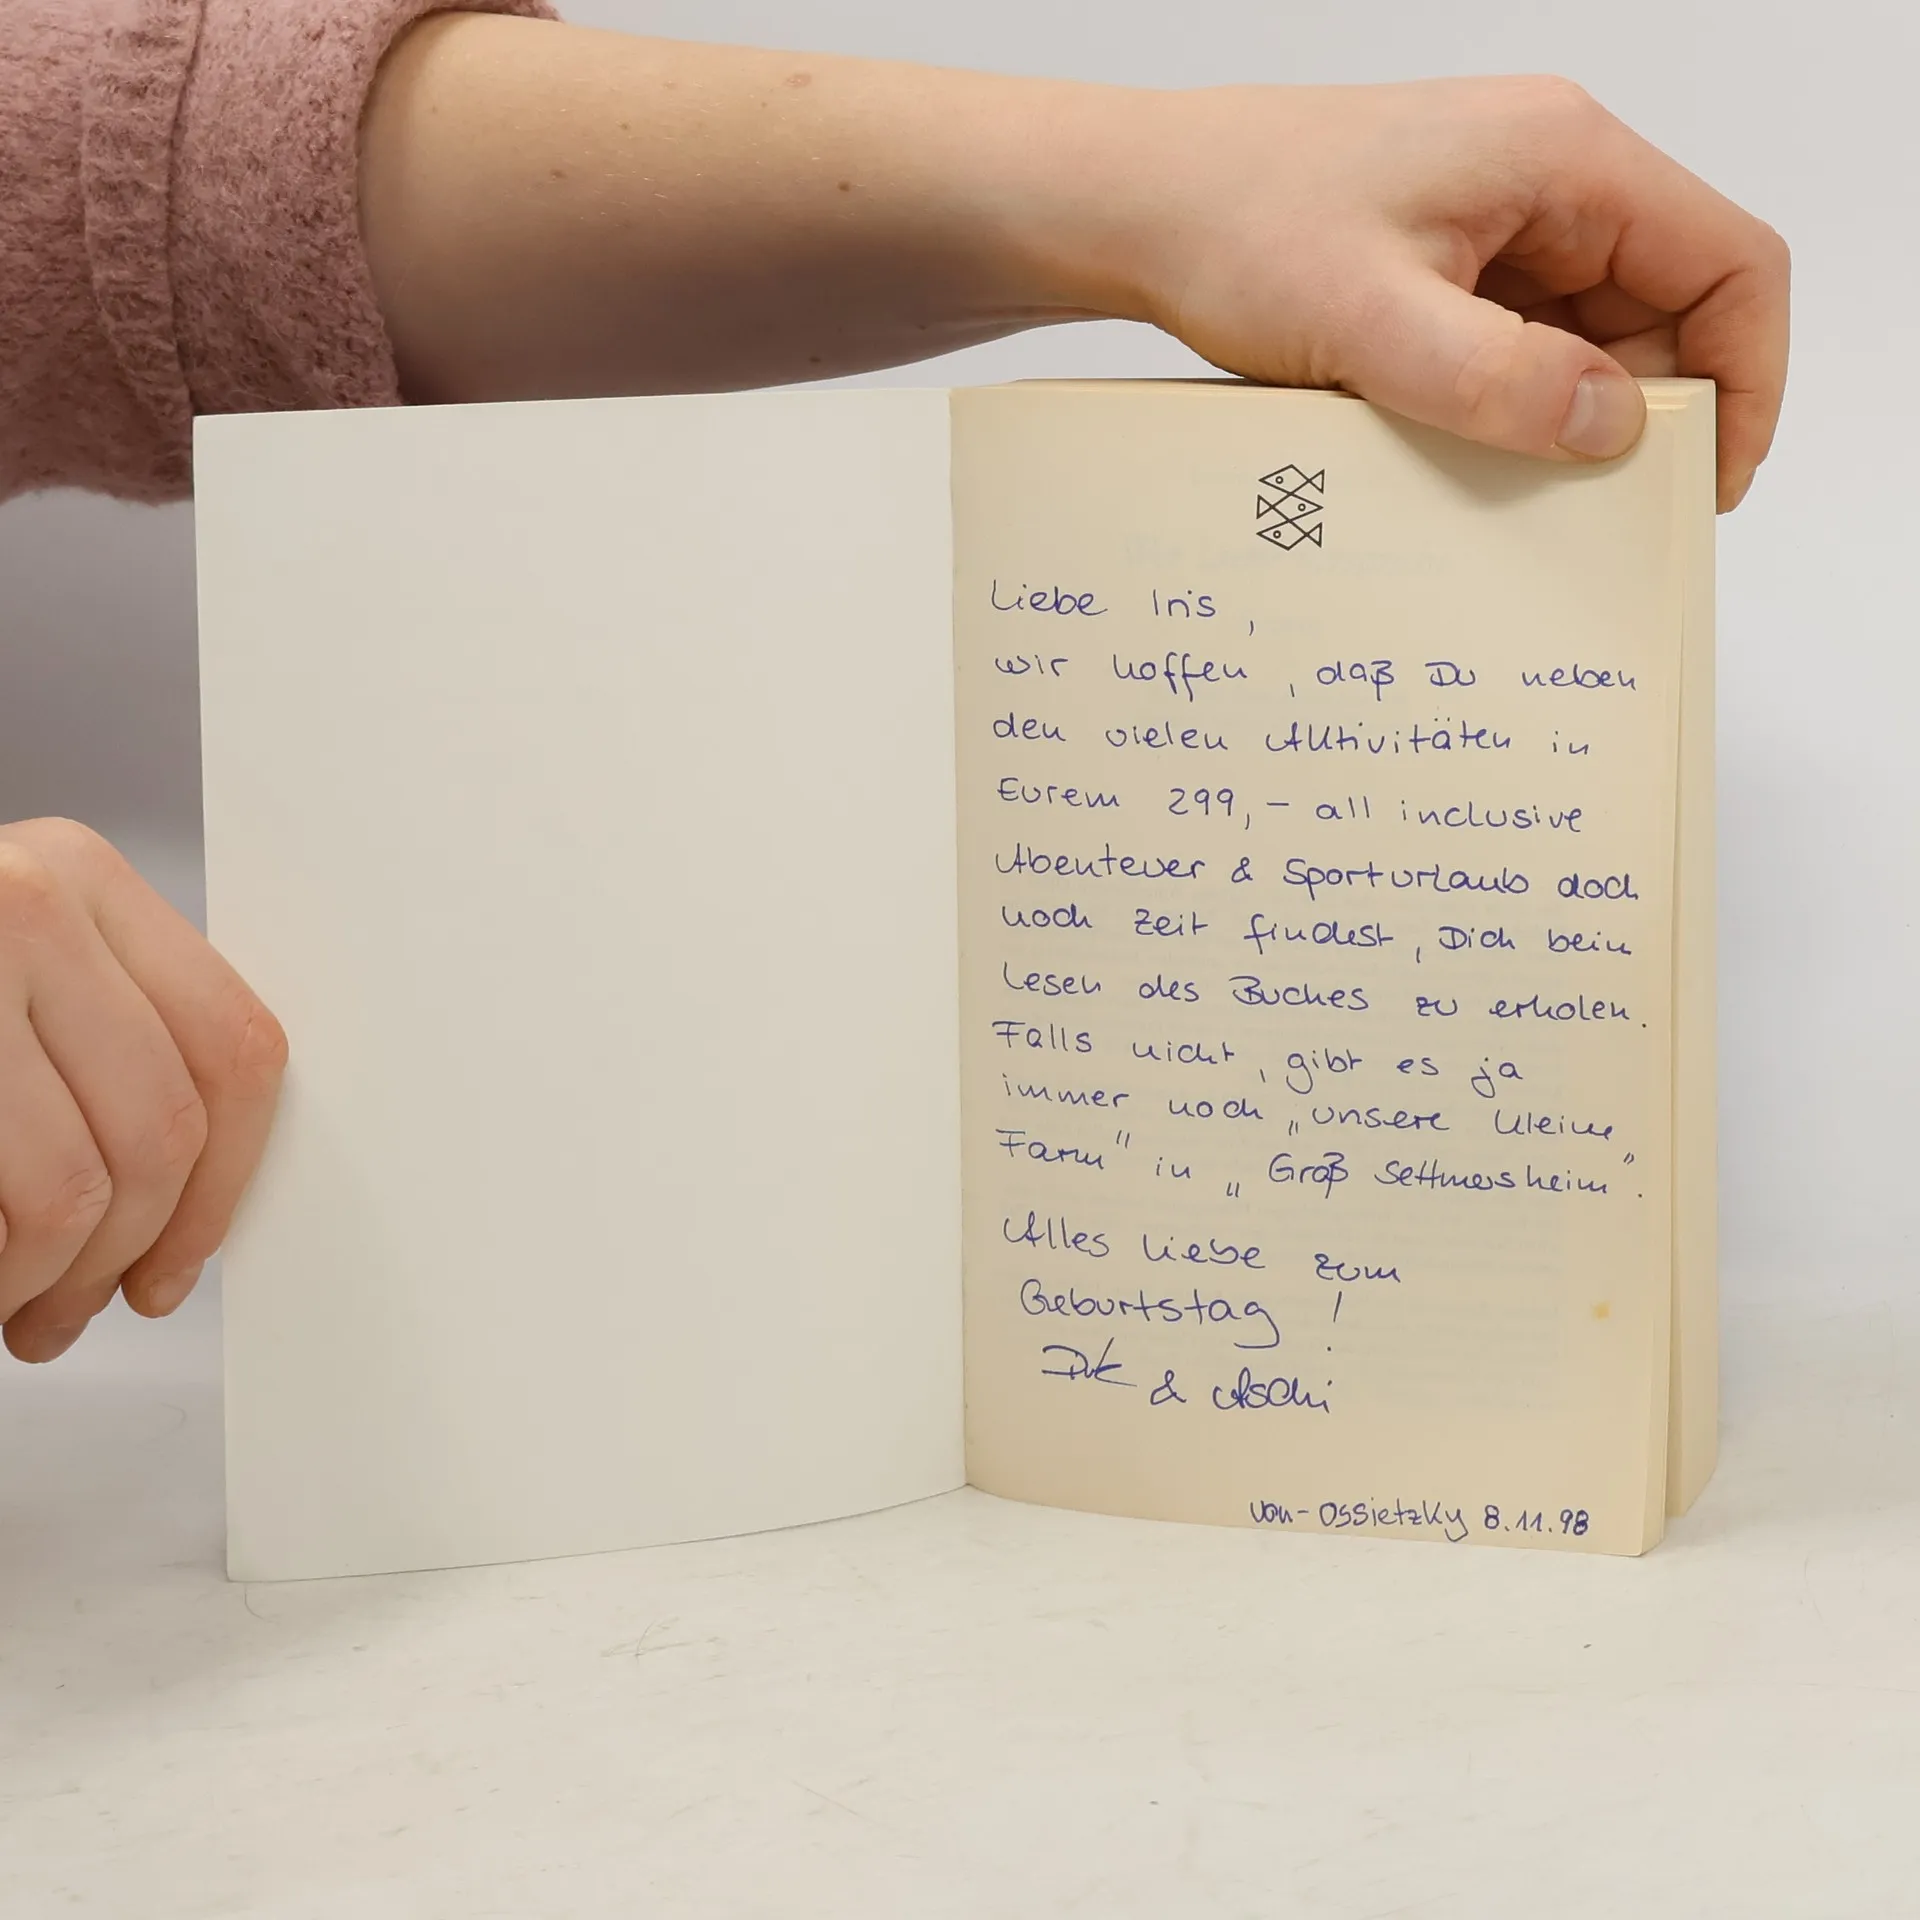 Liebe Iris,
wir hoffen, daß Du neben
den vielen Aktivitäten in
Eurem 299,- all inclusive
Abenteuer & Sporturlaub doch
noch Zeit findest, Dich beim
Lesen des Buches zu erholen.
Falls nicht, gibt es ja
immer noch „unsere kleine
Farm" in „Groß Settmersheim".
Alles Liebe zum
Geburtstag!
& Aschi
von-Ossietzky 8.11.98